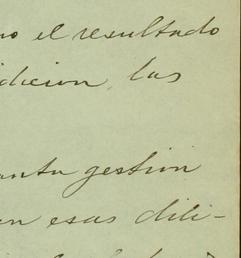 no el resultado
dicion, las
anta gestión
en esas dili-